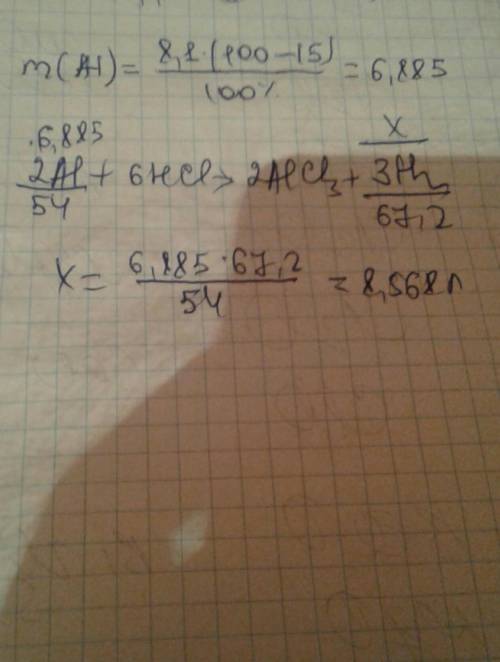 m(Al) = 8,1·(100-15) / 100% = 6,885
6,885 x
2Al + 6HCl → 2AlCl₃ + 3H₂
54 67,2
x = 6,885·67,2 / 54 = 8,568л